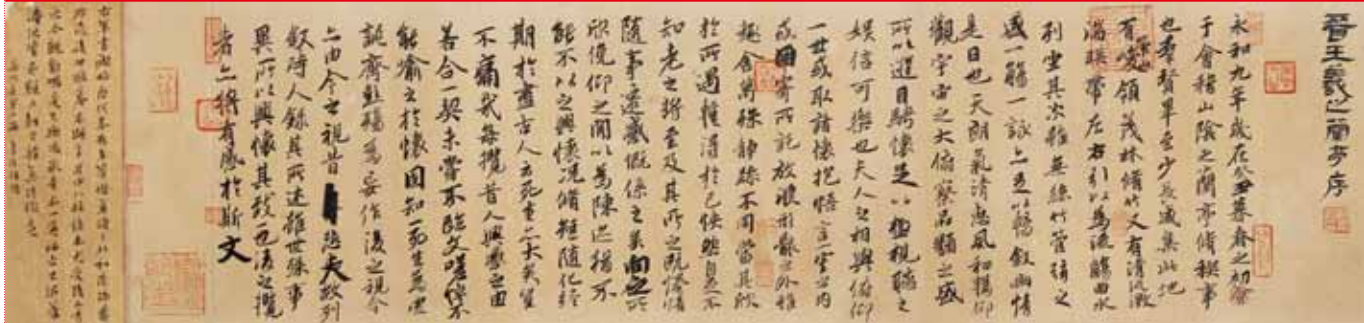 晉王羲之蘭亭序
永和九年歲在癸丑暮春之初會
于會稽山陰之蘭亭脩禊事
也羣賢畢至少長咸集此地
有崇山峻領茂林脩竹又有清流激
湍暎帶左右引以為流觴曲水
列坐其次雖無絲竹管弦之
盛一觴一詠亦足以暢敘幽情
是日也天朗氣清惠風和暢仰
觀宇宙之大俯察品類之盛
所以遊目騁懷足以極視聽之
娛信可樂也夫人之相與俯仰
一世或取諸懷抱悟言一室之內
或因寄所託放浪形骸之外雖
趣舍萬殊靜躁不同當其欣
於所遇蹔得於己怏然自足不
知老之將至及其所之既惓情
隨事遷感慨係之矣向之所
欣俛仰之閒以為陳迹猶不
能不以之興懷況脩短隨化終
期於盡古人云死生亦大矣豈
不痛哉每攬昔人興感之由
若合一契未嘗不臨文嗟悼不
能喻之於懷固知一死生為虛
誕齊彭殤為妄作後之視今
亦由今之視昔悲夫故列
敘時人錄其所述雖世殊事
異所以興懷其致一也後之攬
者亦將有感於斯文